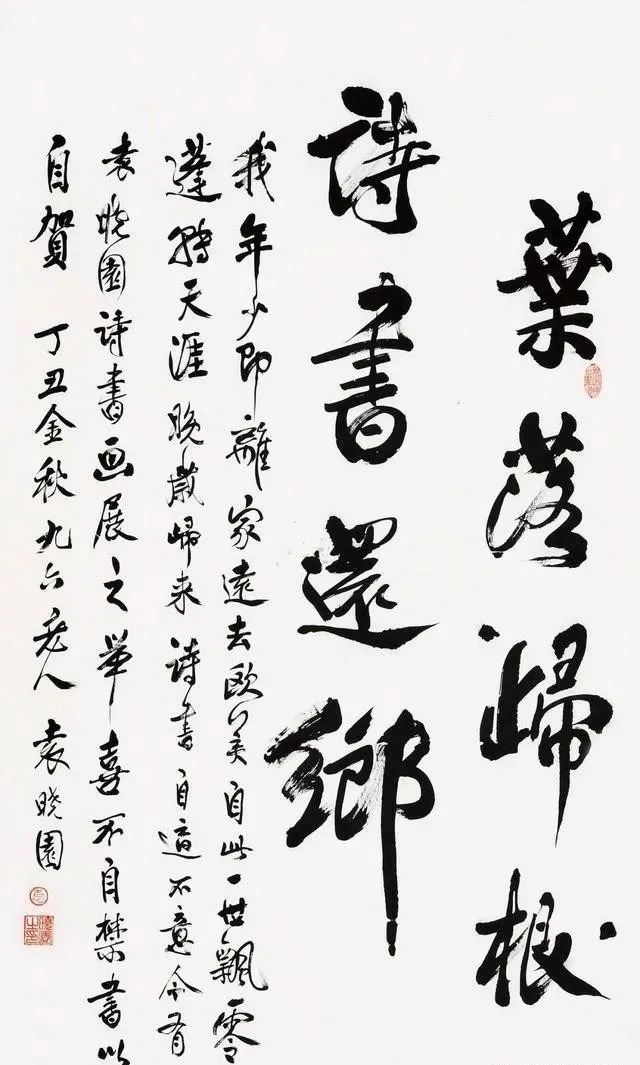 葉落歸根
詩書還鄉
我年少即離家遠去欧美自此一世飄零
蓬轉天涯晚歲歸来詩書自適不意今有
袁曉園詩書画展之举喜不自禁書以
自賀 丁丑金秋九六老人 袁曉園